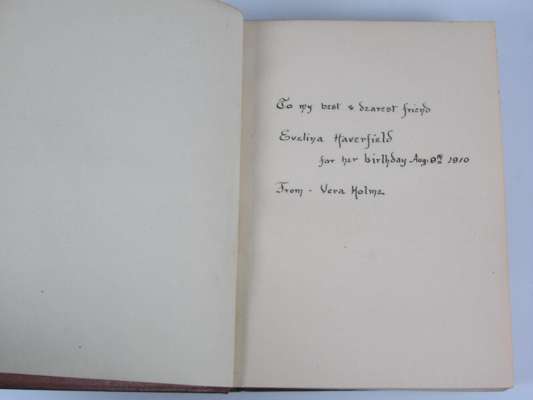 To my best & dearest friend
Evelina Haverfield
for her birthday Aug. 9th 1910
From - Vera Holme